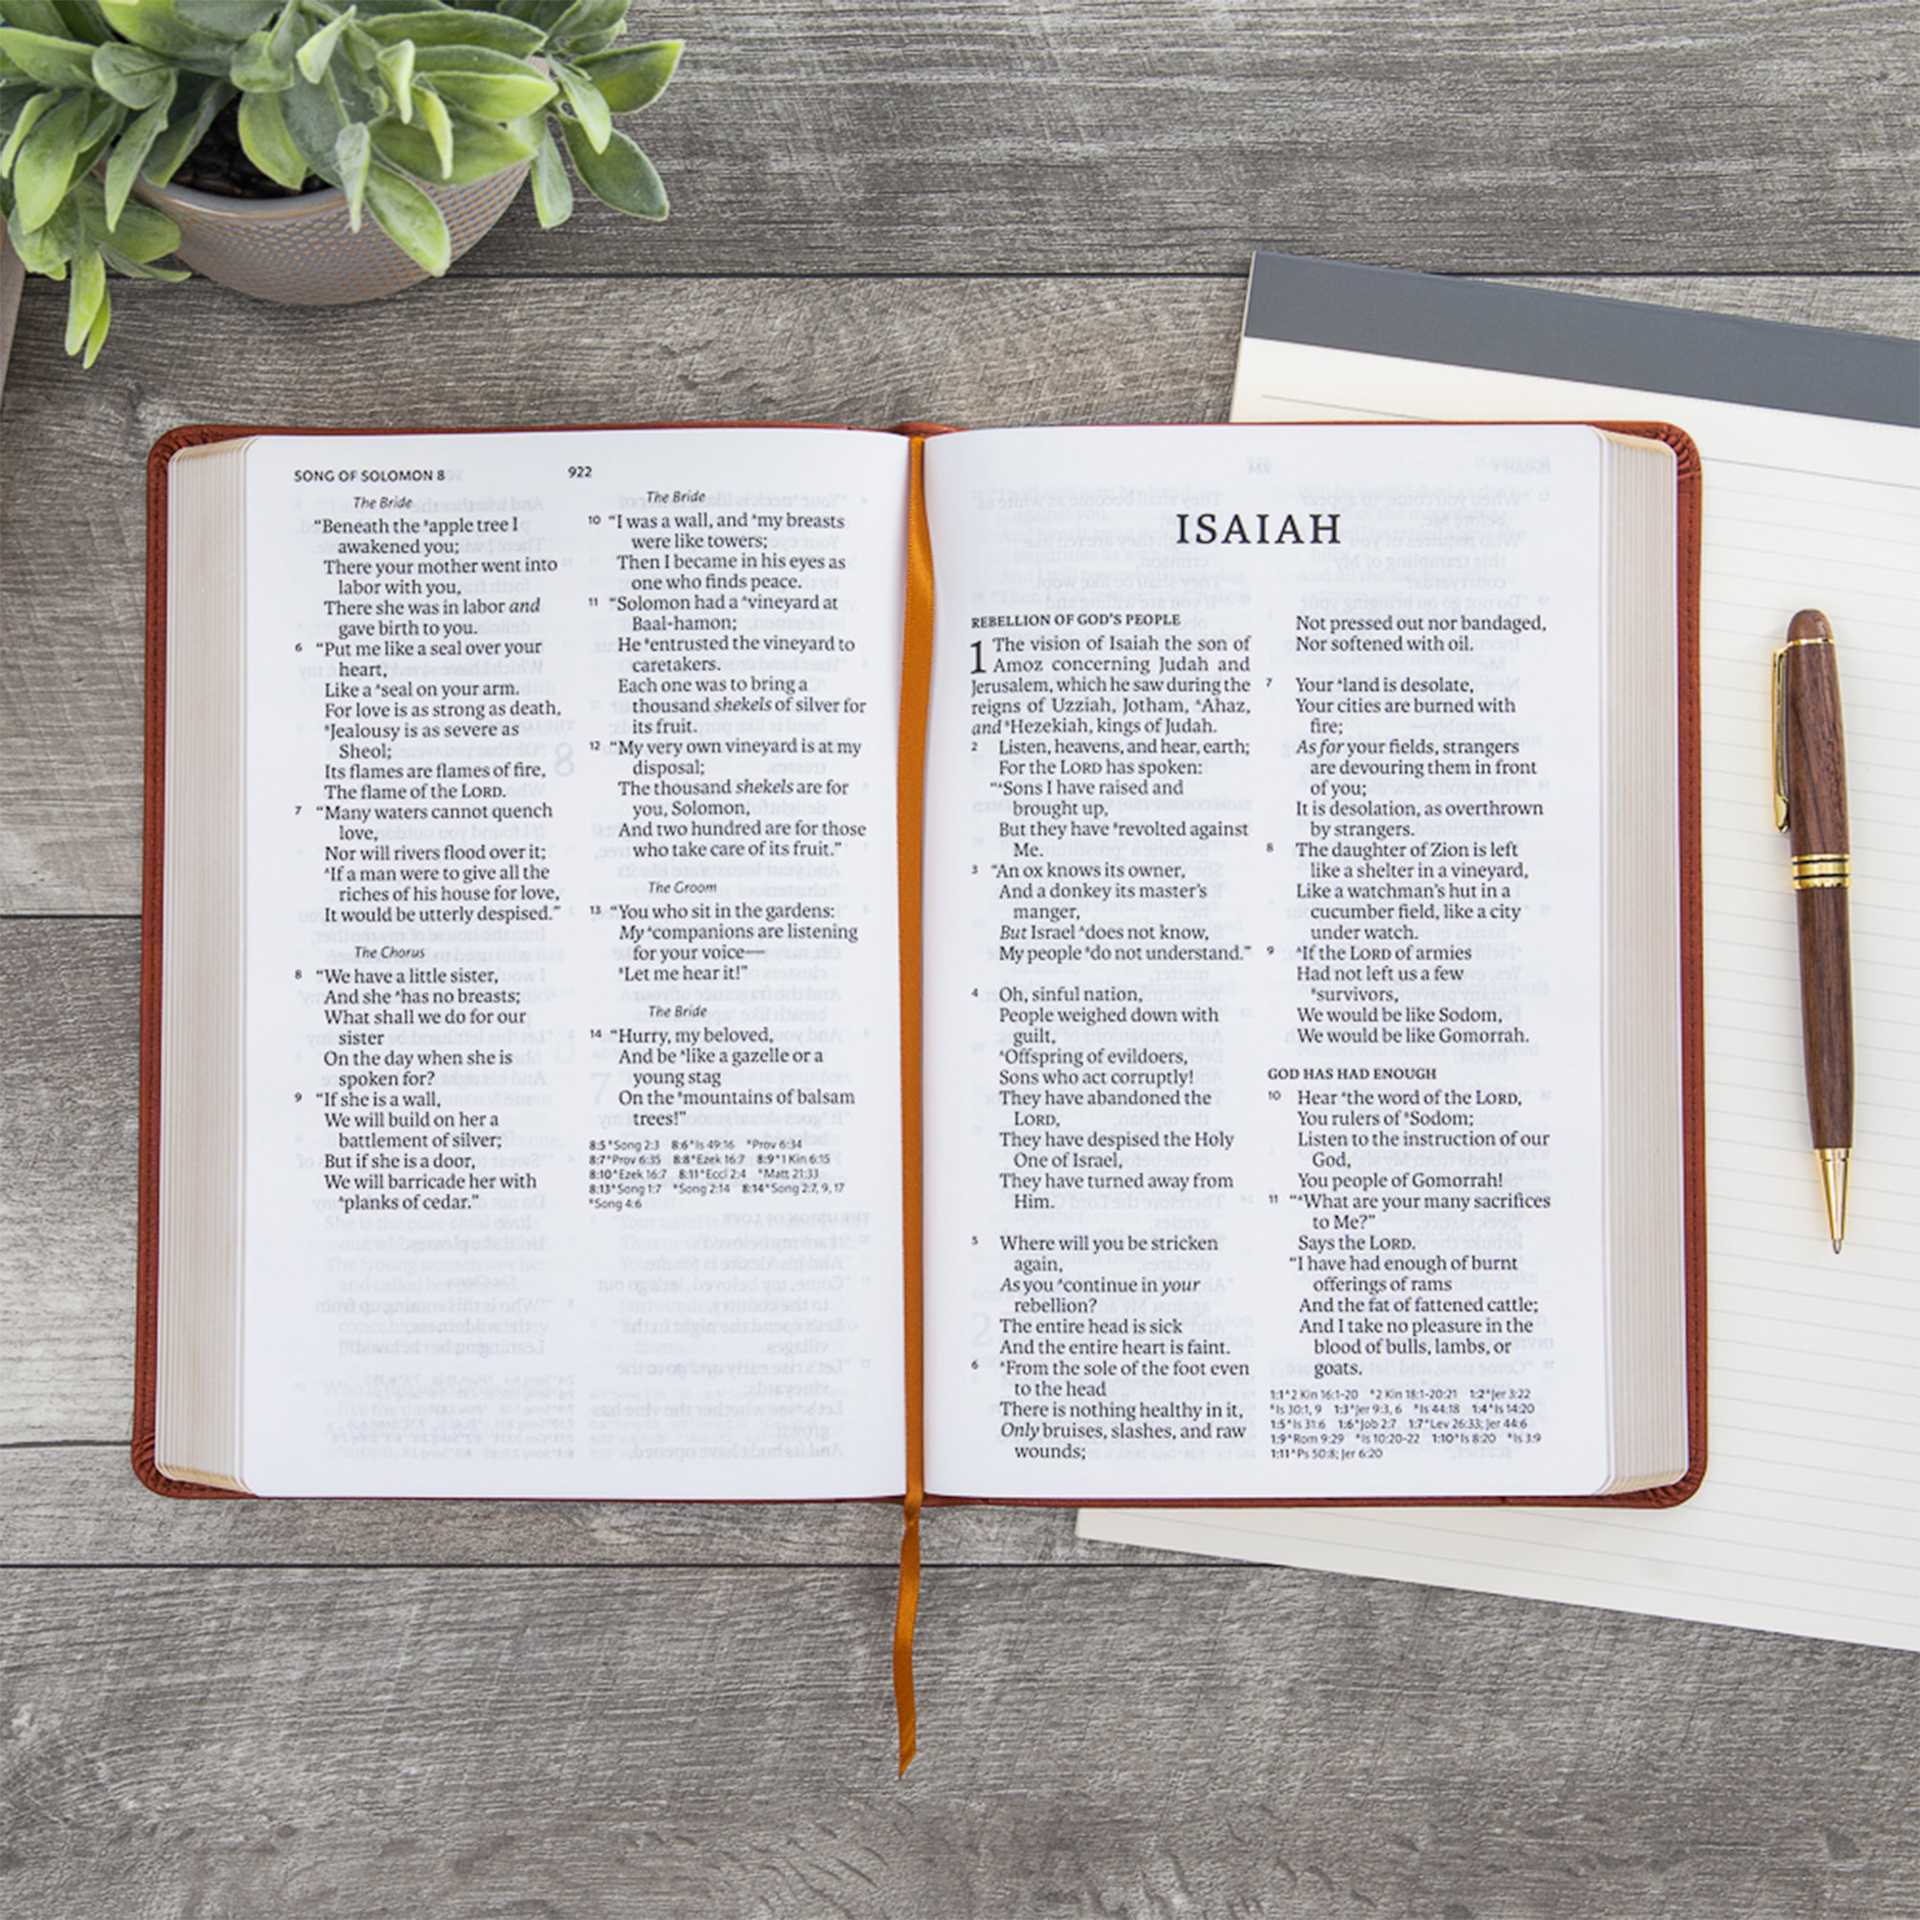 SONG OF SOLOMON 8
922
The Bride
“Beneath the ᴬapple tree I
awakened you;
There your mother went into
labor with you,
There she was in labor and
gave birth to you.
6 “Put me like a seal over your
heart,
Like a ᴬseal on your arm.
For love is as strong as death,
ᴮJealousy is as severe as
Sheol;
Its flames are flames of fire,
The flame of the LORD.
7 “Many waters cannot quench
love,
Nor will rivers flood over it;
ᴬIf a man were to give all the
riches of his house for love,
It would be utterly despised.”
The Chorus
8 “We have a little sister,
And she ᴬhas no breasts;
What shall we do for our
sister
On the day when she is
spoken for?
9 “If she is a wall,
We will build on her a
battlement of silver;
But if she is a door,
We will barricade her with
ᴬplanks of cedar.”
The Bride
10 “I was a wall, and ᴬmy breasts
were like towers;
Then I became in his eyes as
one who finds peace.
11 “Solomon had a ᴬvineyard at
Baal-hamon;
He ᴮentrusted the vineyard to
caretakers.
Each one was to bring a
thousand shekels of silver for
its fruit.
12 “My very own vineyard is at my
disposal;
The thousand shekels are for
you, Solomon,
And two hundred are for those
who take care of its fruit.”
The Groom
13 “You who sit in the gardens:
My ᴬcompanions are listening
for your voice—
ᴮLet me hear it!”
The Bride
14 “Hurry, my beloved,
And be ᴬlike a gazelle or a
young stag
On the ᴮmountains of balsam
trees!”
8:5 ᴬSong 2:3 8:6 ᴬIs 49:16 ᴮProv 6:34
8:7 ᴬProv 6:35 8:8 ᴬEzek 16:7 8:9 ᴬ1 Kin 6:15
8:10 ᴬEzek 16:7 8:11 ᴬEccl 2:4 ᴮMatt 21:33
8:13 ᴬSong 1:7 ᴮSong 2:14 8:14 ᴬSong 2:7, 9, 17
ᴮSong 4:6
ISAIAH
REBELLION OF GOD’S PEOPLE
1 The vision of Isaiah the son of
Amoz concerning Judah and
Jerusalem, which he saw during the
reigns of Uzziah, Jotham, ᴬAhaz,
and ᴮHezekiah, kings of Judah.
2 Listen, heavens, and hear, earth;
For the LORD has spoken:
“ᴬSons I have raised and
brought up,
But they have ᴮrevolted against
Me.
3 “An ox knows its owner,
And a donkey its master’s
manger,
But Israel ᴬdoes not know,
My people ᴮdo not understand.”
4 Oh, sinful nation,
People weighed down with
guilt,
ᴬOffspring of evildoers,
Sons who act corruptly!
They have abandoned the
LORD,
They have despised the Holy
One of Israel,
They have turned away from
Him.
5 Where will you be stricken
again,
As you ᴬcontinue in your
rebellion?
The entire head is sick
And the entire heart is faint.
6 ᴬFrom the sole of the foot even
to the head
There is nothing healthy in it,
Only bruises, slashes, and raw
wounds;
Not pressed out nor bandaged,
Nor softened with oil.
7 Your ᴬland is desolate,
Your cities are burned with
fire;
As for your fields, strangers
are devouring them in front
of you;
It is desolation, as overthrown
by strangers.
8 The daughter of Zion is left
like a shelter in a vineyard,
Like a watchman’s hut in a
cucumber field, like a city
under watch.
9 ᴬIf the LORD of armies
Had not left us a few
ᴮsurvivors,
We would be like Sodom,
We would be like Gomorrah.
GOD HAS HAD ENOUGH
10 Hear ᴬthe word of the LORD,
You rulers of ᴮSodom;
Listen to the instruction of our
God,
You people of Gomorrah!
11 “ᴬWhat are your many sacrifices
to Me?”
Says the LORD.
“I have had enough of burnt
offerings of rams
And the fat of fattened cattle;
And I take no pleasure in the
blood of bulls, lambs, or
goats.
1:1 ᴬ2 Kin 16:1-20 ᴮ2 Kin 18:1–20:21 1:2 ᴬJer 3:22
ᴮIs 30:1, 9 1:3 ᴬJer 9:3, 6 ᴮIs 44:18 1:4 ᴬIs 14:20
1:5 ᴬIs 31:6 1:6 ᴬJob 2:7 1:7 ᴬLev 26:33; Jer 44:6
1:9 ᴬRom 9:29 ᴮIs 10:20-22 1:10 ᴬIs 8:20 ᴮIs 3:9
1:11 ᴬPs 50:8; Jer 6:20